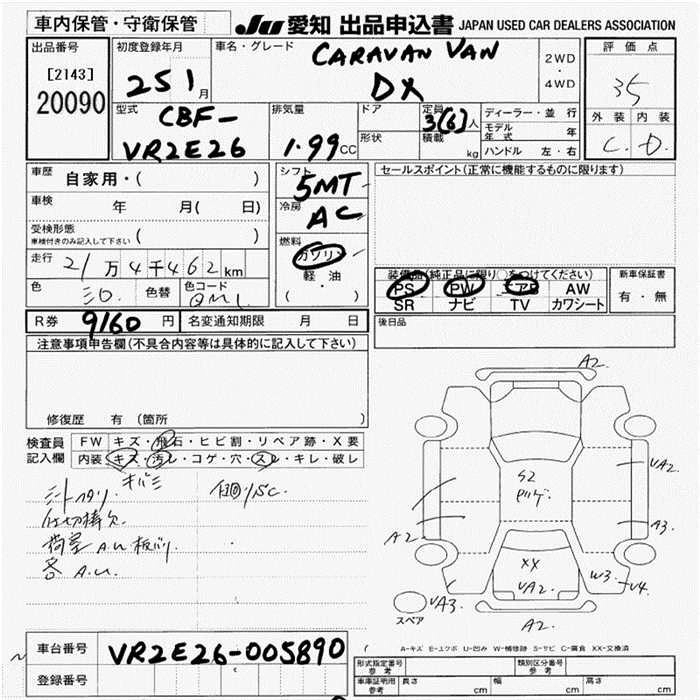 車内保管・守衛保管 JU 愛知 出品申込書 JAPAN USED CAR DEALERS ASSOCIATION
出品番号 初度登録年月 車名・グレード CARAVAN VAN 2WD ・ 4WD 評価点
[2143] 25 1月 DX 35
20090 型式 CBF- 排気量 ドア 定員 3(6)人 ディーラー・並行 外装 内装
VR2E26 1.99CC 形状 積載 kg モデル年式 年 C. D.
ハンドル 左・右
車歴 自家用・( ) シフト 5MT セールスポイント(正常に機能するものに限ります)
車検 年 月( 日) 冷房 AC
受検形態 ( )
車検付きのみ記入して下さい
燃料 ガソリン
走行 21万4千462km 軽油
色 シロ. 色替 色コード QM1 ( ・ )
装備品(純正品に限り○をつけてください) 新車保証書
PS PW エアB AW 有・無
SR ナビ TV カワシート
R券 9160円 名変通知期限 月 日 後日品
注意事項申告欄(不具合内容等は具体的に記入して下さい)
修復歴 有 (箇所 )
検査員 FW キズ・飛石・ヒビ割・リペア跡・X要
記入欄 内装 キズ・汚レ・コゲ・穴・スレ・キレ・破レ
キバミ
仕切棒欠.
荷室 A.U 板バリ.
各 A.U.
A2
S2
UA2
A2 A3
XX
UA2. W3 U4
UA3
スペア A2
A-キズ E-エクボ U-凹み W-補修跡 S-サビ C-腐食 XX-交換済
車台番号 VR2E26-005890
登録番号
形式指定番号 参考 類別区分番号 参考
車庫証明用 参考 長さ cm 幅 cm 高さ cm